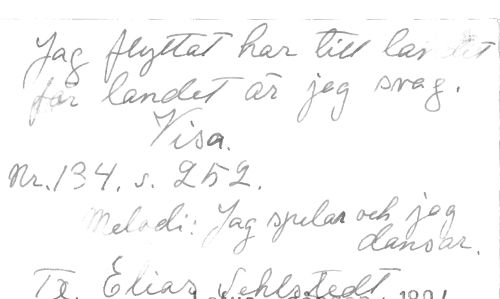 Jag flyttat har till landet
för landet är jag svag.
Visa.
Nr. 134. s. 252.
Melodi: Jag spelar och jag
dansar.
Elias Sehlstedt